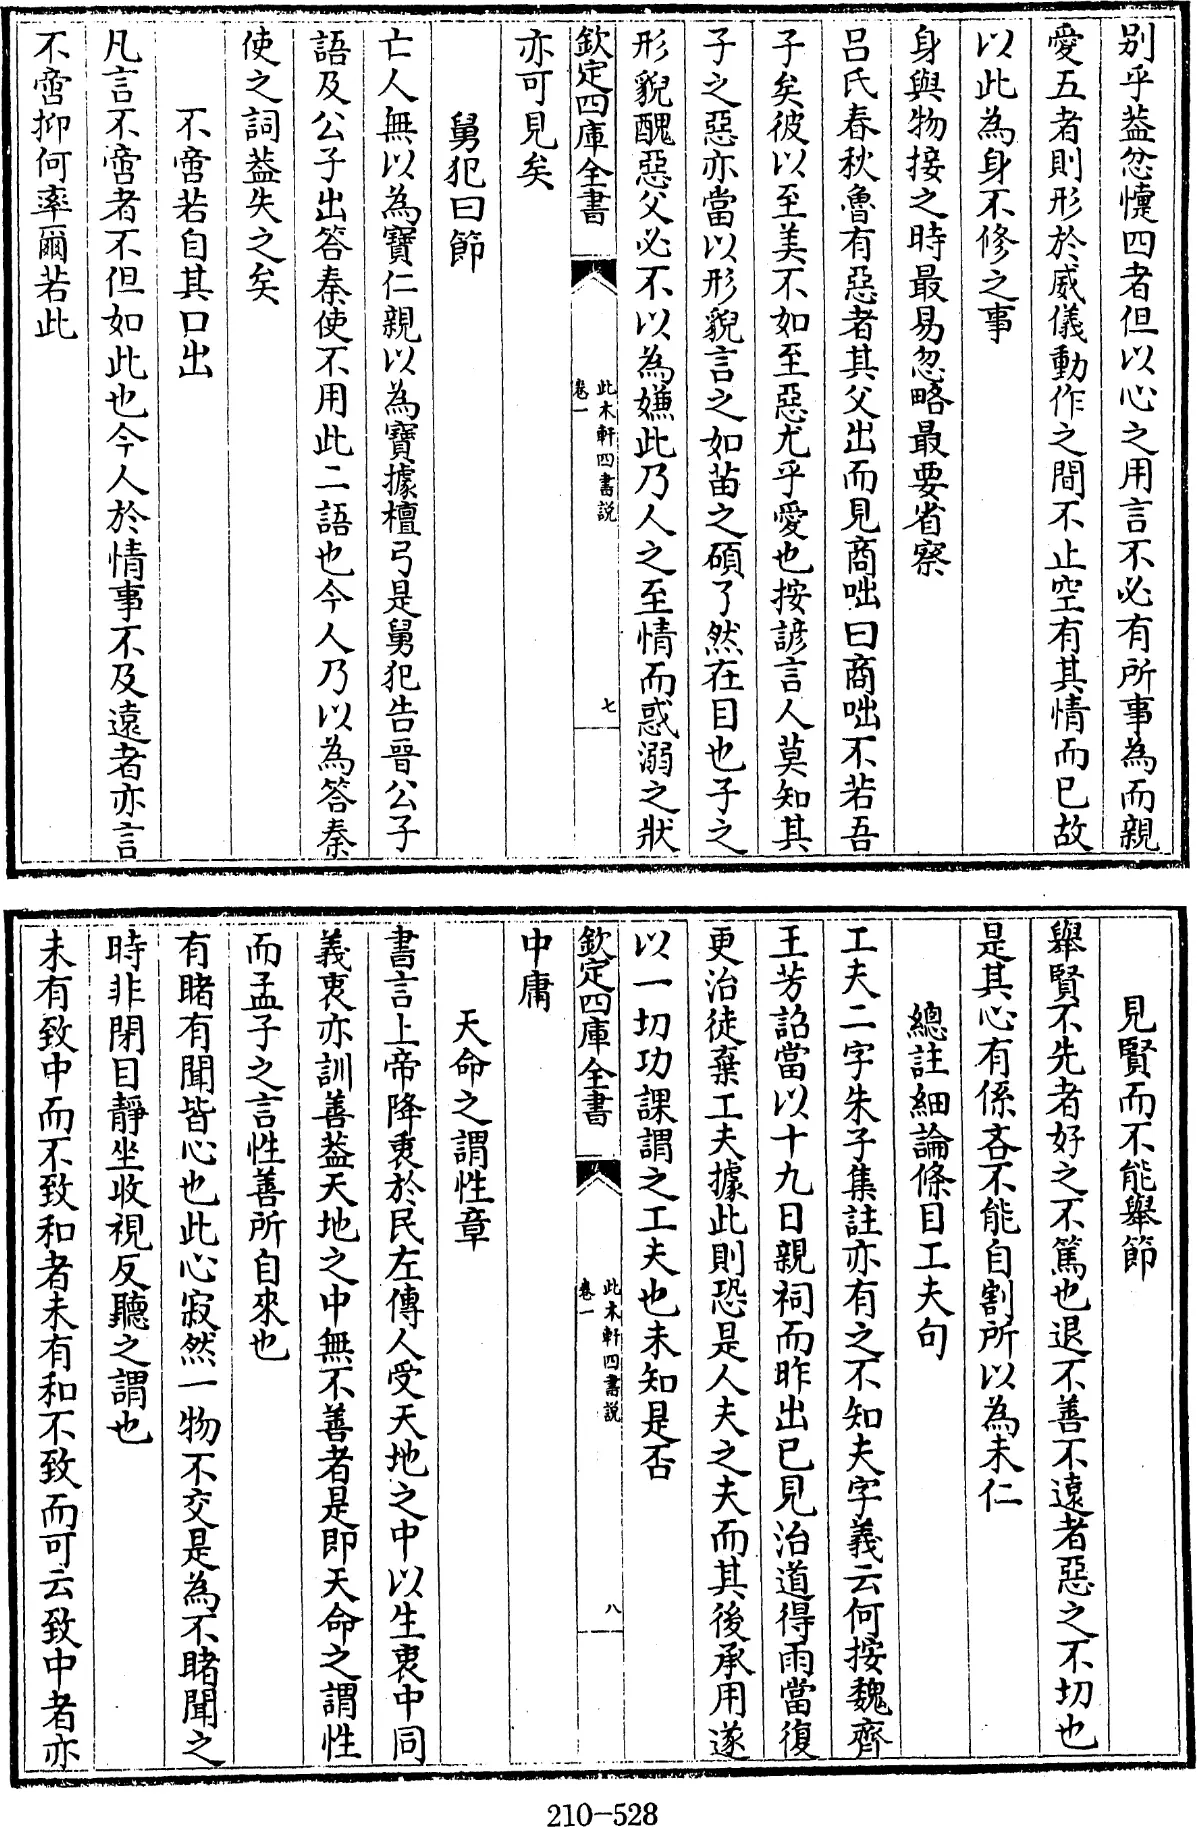 别乎葢忿懥四者但以心之用言不必有所事為而親
愛五者則形於威儀動作之間不止空有其情而已故
以此為身不修之事
身與物接之時最易忽略最要省察
呂氏春秋魯有惡者其父出而見商咄曰商咄不若吾
子矣彼以至美不如至惡尤乎愛也按諺言人莫知其
子之惡亦當以形貌言之如苗之碩了然在目也子之
形貌醜惡父必不以為嫌此乃人之至情而惑溺之狀
欽定四庫全書
此木軒四書説
卷一
七
亦可見矣
舅犯曰節
亡人無以為寶仁親以為寶據檀弓是舅犯告晉公子
語及公子出答秦使不用此二語也今人乃以為答秦
使之詞葢失之矣
不啻若自其口出
凡言不啻者不但如此也今人於情事不及遠者亦言
不啻抑何率爾若此
見賢而不能舉節
舉賢不先者好之不篤也退不善不遠者惡之不切也
是其心有係吝不能自割所以為未仁
總註細論條目工夫句
工夫二字朱子集註亦有之不知夫字義云何按魏齊
王芳詔當以十九日親祠而昨出已見治道得雨當復
更治徒棄工夫據此則恐是人夫之夫而其後承用遂
以一切功課謂之工夫也未知是否
欽定四庫全書
此木軒四書説
卷一
八
中庸
天命之謂性章
書言上帝降衷於民左傳人受天地之中以生衷中同
義衷亦訓善葢天地之中無不善者是即天命之謂性
而孟子之言性善所自來也
有睹有聞皆心也此心寂然一物不交是為不睹聞之
時非閉目靜坐收視反聽之謂也
未有致中而不致和者未有和不致而可云致中者亦
210-528